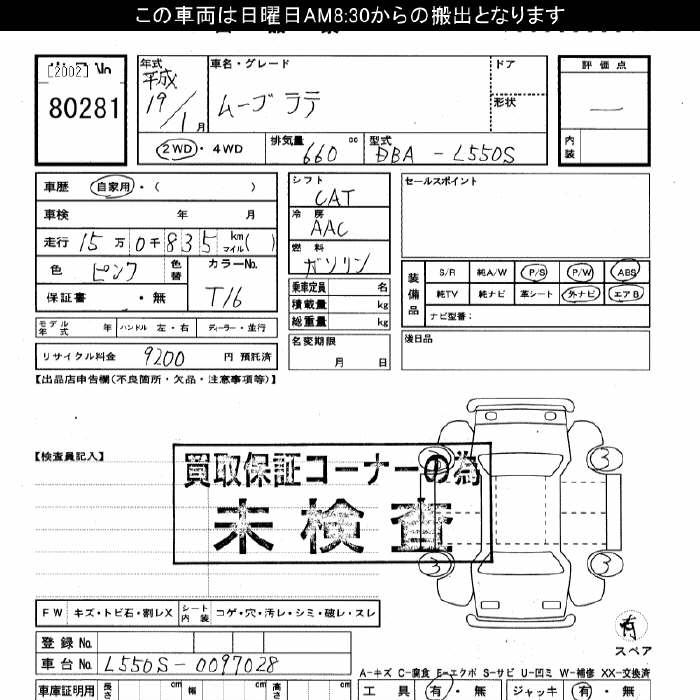 この車両は日曜日AM8:30からの搬出となります
[2002]
80281
年式 車名・グレード ドア 評価点
平成
19/1月 ムーブ ラテ 形状 —
②WD・4WD 排気量 660 cc 型式 DBA-L550S 内装
車歴 自家用・( ) シフト CAT セールスポイント
車検 年 月 冷房 AAC
走行 15万0千835 km マイル( ) 燃料 ガソリン
色 ピンク 色替 カラーNo. T16
保証書 ・無
乗車定員 名
積載量 kg
総重量 kg
装備品 S/R 純A/W P/S P/W ABS
純TV 純ナビ 革シート 外ナビ エアB
ナビ型番:
モデル年式 年 ハンドル 左・右 ディーラー・並行
名変期限 月 日
後日品
リサイクル料金 9200 円 預託済
【出品店申告欄(不良箇所・欠品・注意事項等)】
【検査員記入】
買取保証コーナーの為
未検査
3 3
3 3
有
スペア
FW キズ・トビ石・割レX シート内装 コゲ・穴・汚レ・シミ・破レ・スレ
登録 No.
車台 No. L550S-0097028
A-キズ C-腐食 E-エクボ S-サビ U-凹ミ W-補修 XX-交換済
車庫証明用 長さ cm 幅 cm 高さ cm 工具 有・無 ジャッキ 有・無